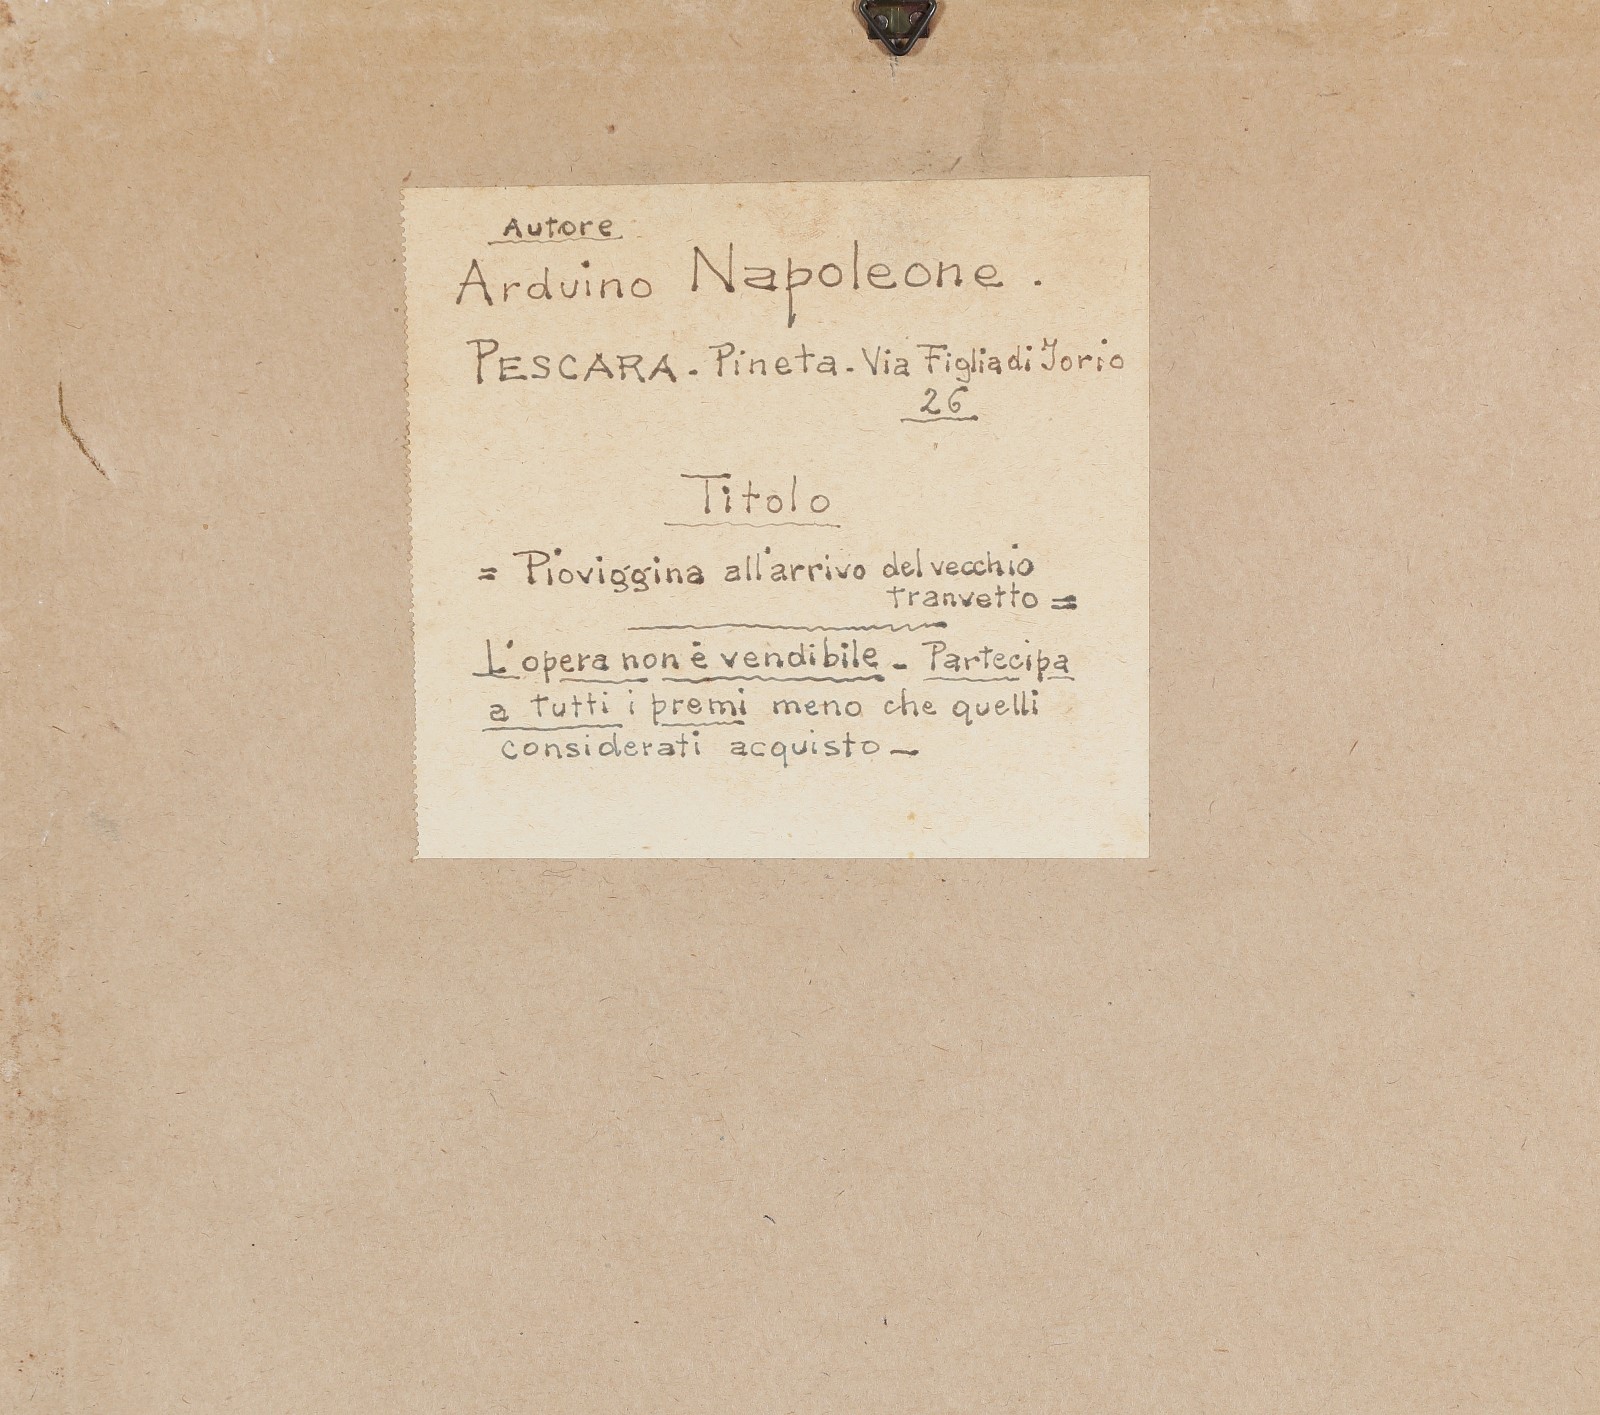 Autore
Arduino Napoleone.
PESCARA - Pineta - Via Figlia di Jorio
26
Titolo
= Pioviggina all'arrivo del vecchio
tranvetto =
L'opera non è vendibile - Partecipa
a tutti i premi meno che quelli
considerati acquisto -